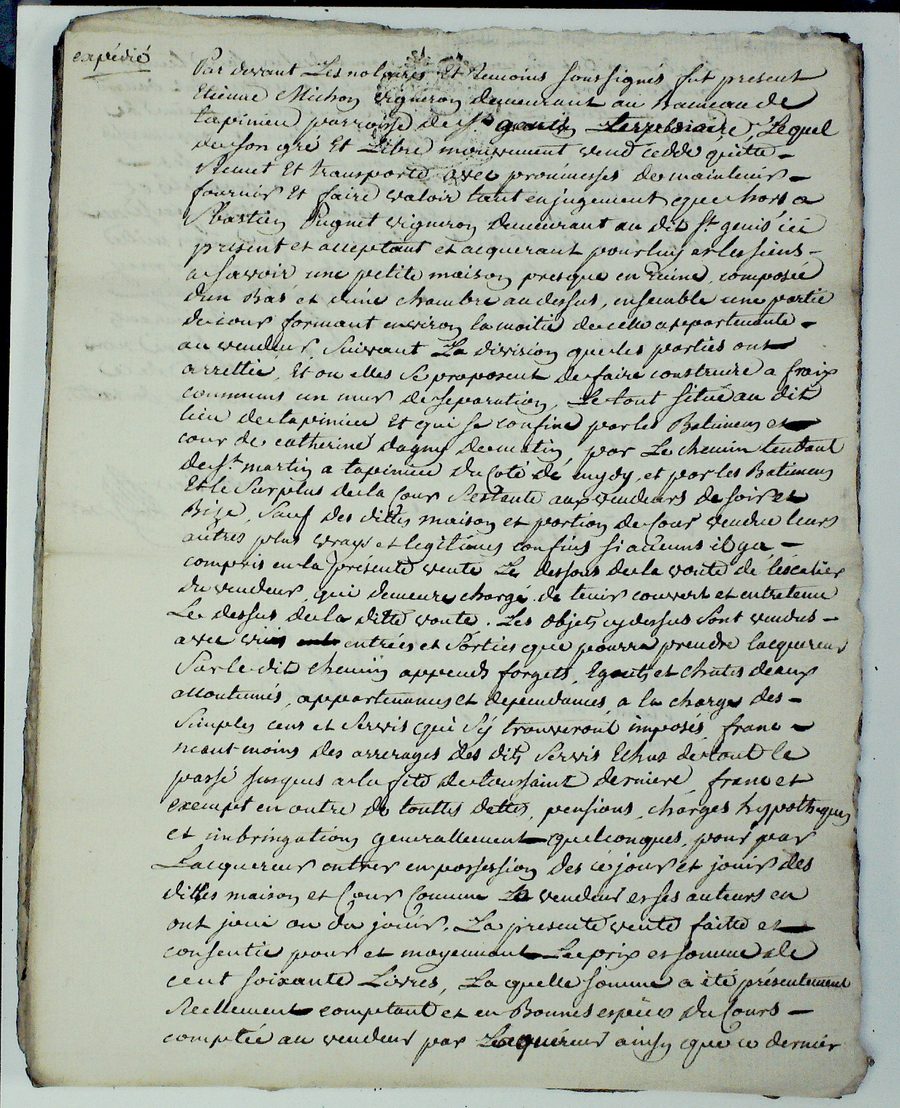 expédié
Par devant Les notaires Et temoins soussignés fut present
Etienne Michon vigneron demeurant au hameau de
tapinieu parroisse de st genis Terrenoire, Lequel
de son gré Et Libre mouvement vend cedde quitte -
Remet Et transporte avec promesses de maintenir -
fournir Et faire valoir tant en jugement que hors a
Sbastien Puynet vigneron demeurant au dit st genis ici
present et acceptant et acquerant pour lui et les siens -
a savoir une petite maison presque en ruine, composée
d'un Bas et d'une chambre au dessus, ensemble une partie
de cour formant environ la moitié de celle appartenante -
au vendeur, suivant La division que les parties ont
arrettée, Et ou elles se proposent de faire construire a fraix
communs un mur de separation, Le tout situé au dit
lieu de tapinieu Et qui se confine par les Batimens et
cour de catherine dagny de matin, par Le chemin tendant
de st martin a tapinieu du Coté de mydy, et par les Batimens
Et le Surplus de la Cour Restante aux vendeurs de soir et
Bize, Sauf des dittes maison et portion de Cour vendue leurs
autres plus vrais et legitimes confins si aucuns il y a, -
compris en la présente vente Le dessous de la voute de l'éscalier
du vendeur, qui demeure chargé de tenir couvert et entretenu
Le dessus de la ditte voute. Les objets cy dessus sont vendus -
avec entrées et sorties que pourra prendre l'acquereur
Sur le dit chemin appends forgets, Egouts et chutes d'eaux
accoutumés, appartenances et dependances, a la charge des -
Simples cens et servis qui s'y trouveront imposés, franc -
neant moins des arrerages des dits servis Echus de tout le
passé jusques a la fete de toussaint derniere, franc et
exempt en outre de touttes dettes, pensions, charges hypotheques
et imbringations generallement quelconques, pour par
L'acquereur entrer en possession des ce jour et jouir des
dittes maison et Cour Comme Le vendeur et ses auteurs en
ont joui ou du jouir. La presente vente faitte et
consentie pour et moyennant Le prix et somme de
cent soixante Livres, La quelle somme a été présentement
Reellement comptant et en Bonnes espèces du Cours -
comptée au vendeur par L'acquéreur ainsy que ce dernier